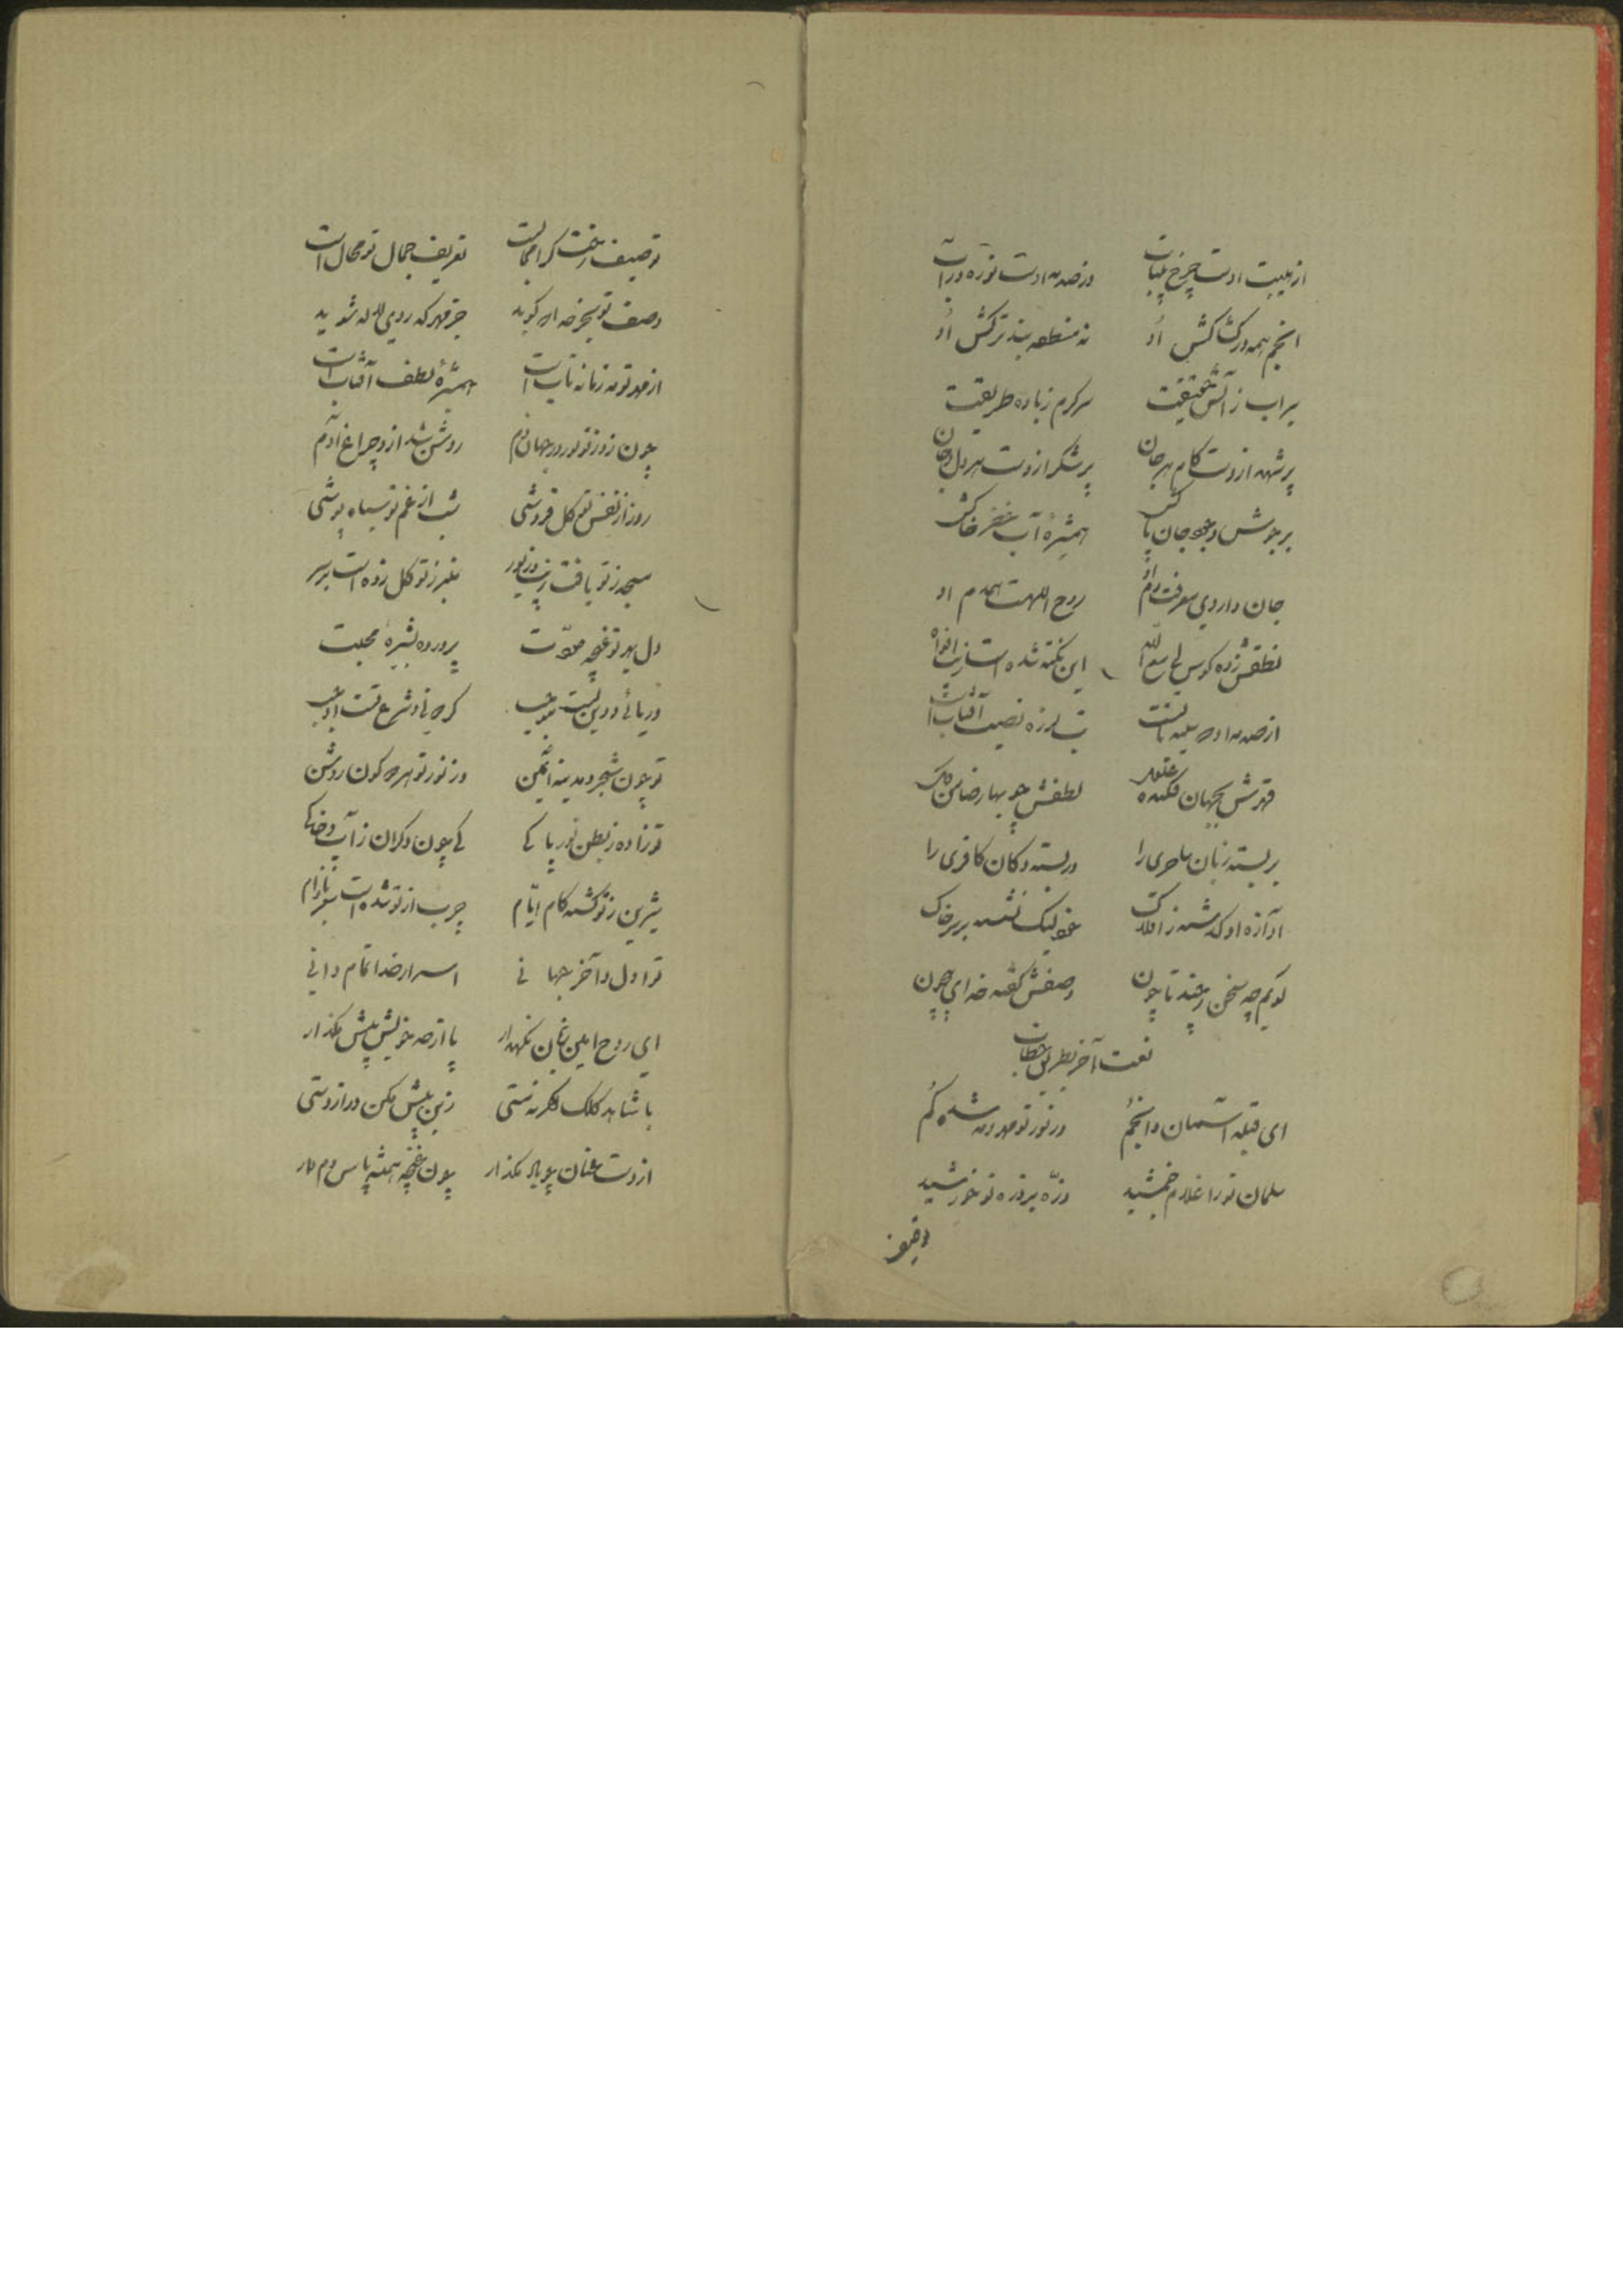 از هیبت اوست چرخ بیتاب وز صدمه اوست نوره در آب
انجم همه در کشاکش او نه منطقه بند ترکش او
سیراب ز آتش حقیقت سرگرم ز باده طریقت
پر شهد ازوست کام هر جان پر شکر ازوست هر دل و جان
بر جوش وجود جان پاکش همشیرهٔ آب خضر خاکش
جان داروی معرفت دم او روح اللهست همدم او
نطقش زده کوس لی مع الله این نکته شده است زیب افواه
از صدمه او تب لرزه نصیب آفتابست
قهرش بجهان فکنده لطفش چو بهار ضامن
بر بسته زبان ساحری را در بسته دکان کافری را
آوازه او گذشته ز افلاک خود لیک نشسته بر سر خاک
گویم چه سخن ز چند تا چون وصفش گفته خدای بیچون
نعت آخر بطریق خطاب
ای قبله آسمان و انجم در نور تو مهر و مه شده گم
سلمان تو را غلام جمشید ذرّه بر ذره تو خورشید
توصیف
توصیف رخت کرا مجالست تعریف جمال تو محال است
وصف تو بجز خدا که گوید جز قهر که روی لاله شوید
از مهر تو مه زمانه تابست همشیرهٔ لطف آفتابست
چون زد ز تو نور در جهان دم روشن شد ازو چراغ آدم
روز از نفس تو گل فروشی شب از غم تو سیاه پوشی
مسجد ز تو یافت زینت و نور منبر ز تو گل زده است بر سر
دل بهر تو غنچه مودّت پرورده بشیرهٔ محبت
دریائی و دین تست گرچه شرع تست
تو چون شجر و مدینه ایمن وز نور تو هر دو کون روشن
تو زاده ز بطن نور پاکی کی چون دگران ز آب و خاکی
شیرین ز تو گشته کام ایّام چرب از تو شده است مغز بادام
تو اول و آخر جهانی اسرار خدا تمام دانی
ای روح امین عنان نگهدار پا از حد خویش پیش مگذار
با شاهد کلک فکر مستی زین بیش مکن دراز دستی
از دست عنان چو باد مگذار چون غنچه همیشه پاس دم دار